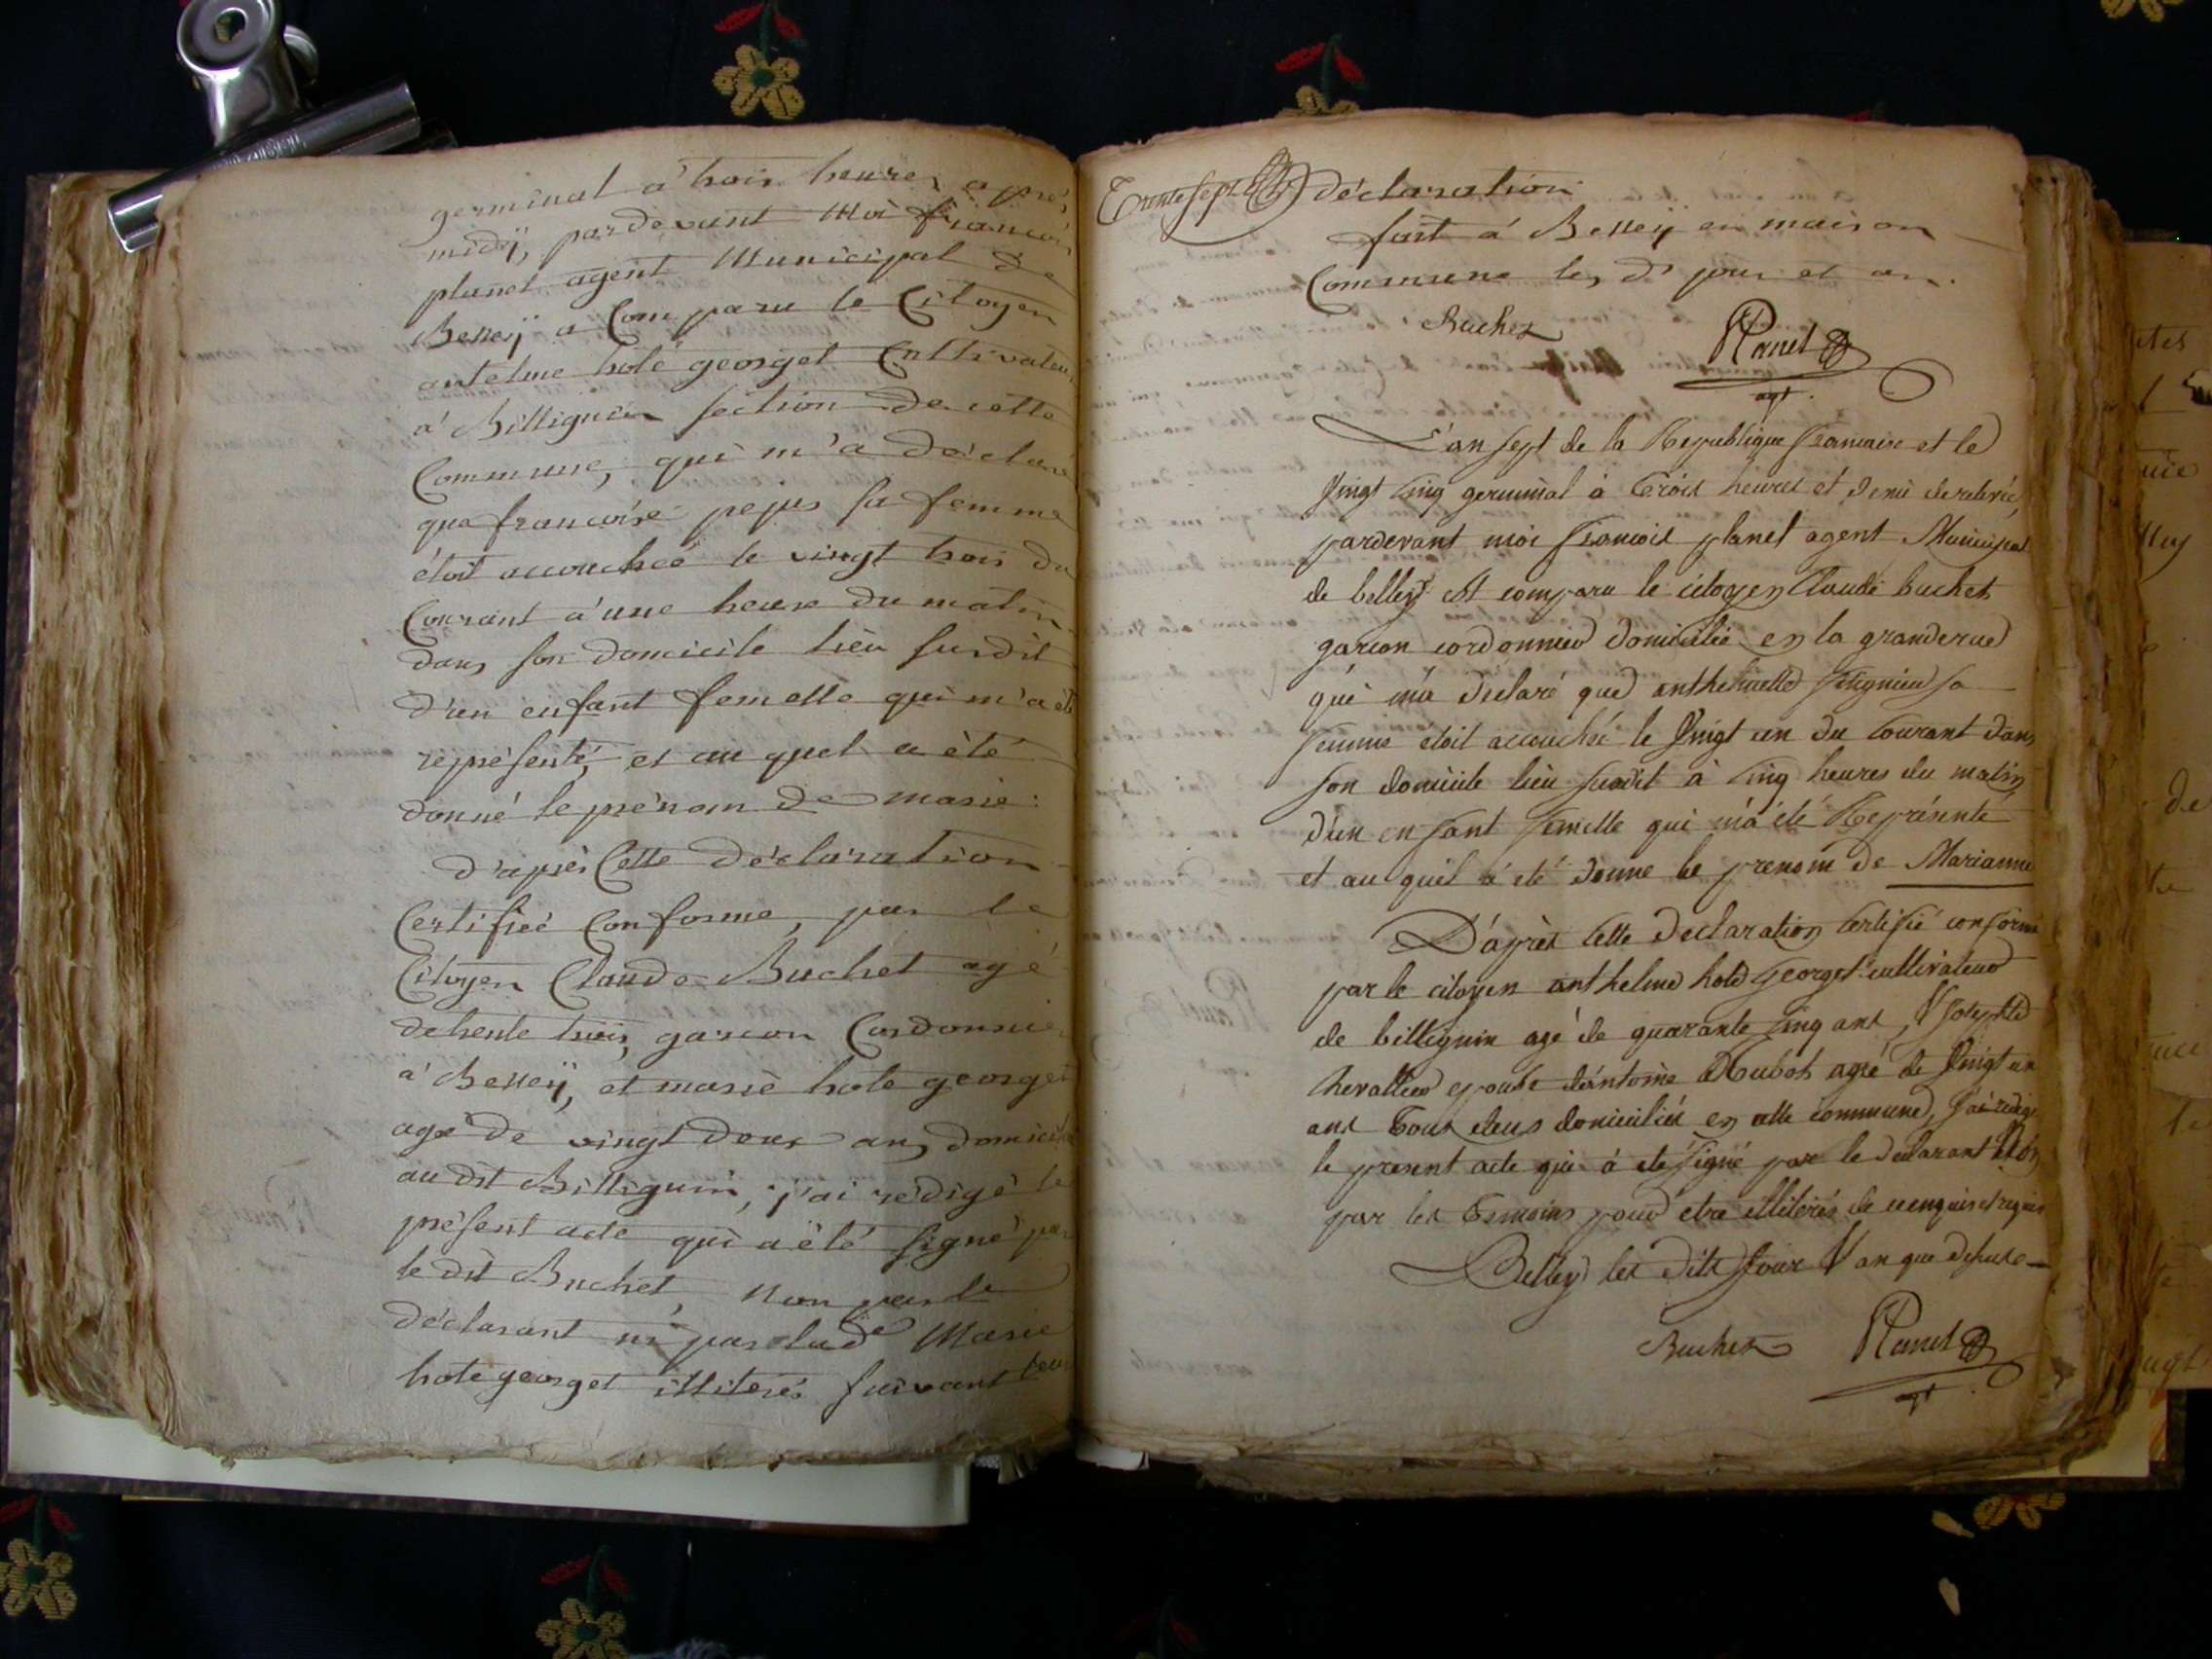 germinal à trois heures après
midÿ, pardevant Moi françois
planet agent Municipal de
Belleÿ a Comparu le Citoyen
antelme hote georget Cultivateur
à Billignin section de cette
Commune, qui m'a déclaré
que francoise pepus sa femme
étoit accouchée le vingt trois du
Courant à une heure du matin
dans son domicile lieu susdit
d'un enfant femelle qui m'a été
représenté, et au quel a été
donné le prénom de marie:
d'après Cette déclaration
Certifiée Conforme, par le
Citoyen Claude Buchet agé
de trente trois, garcon Cordonnier
à Belleÿ, et marie hote georget
agé de vingt deux ans domicilié
audit Billignin, j'ai rédigé le
présent acte qui a été signé par
le dit Buchet, non par le
déclarant ni par lad.e Marie
hote georget illiterés suivant leur
Trente sept déclaration
fait à Belleÿ en maison
Commune les d. jour et an.
Buchet Planet
agt.
L'an sept de la Republique francaise et le
Vingt Cinq germinal à trois heures et demi de relevée,
pardevant moi francois planet agent Municipal
de belley est comparu le citoyen Claude buchet
garcon cordonnier domicilié en la grande rue
qui m'a declaré que anthelmette sa
femme etoit accouchée le Vingt un du Courant dans
son domicile lieu susdit à Cinq heures du matin
d'un enfant femelle qui m'a été Représenté
et au quel à été donne le prenom de Marianne
D'après Cette declaration Certifié conforme
par le citoyen anthelme hote georget cultivateur
de billignin agé de quarante Cinq ans, & Josephte
epouse d'antoine agé de Vingt un
ans Tous deux domiciliés en cette commune, J'ai redigé
le present acte qui à eté signé par le declarant & non
par les Temoins pour etre illiterés de ce enquis et requis
Belley les dits Jour & an que dessus
Buchet Planet
agt.